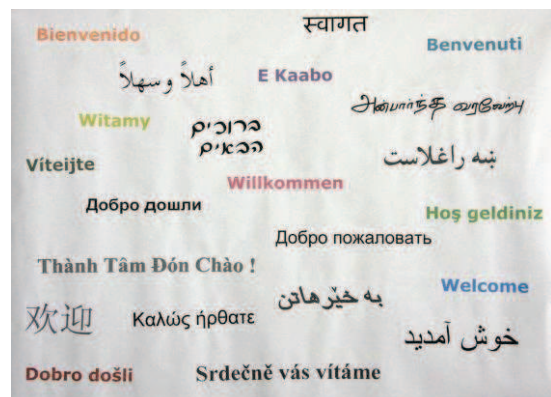 Bienvenido
स्वागत
Benvenuti
أهلاً وسهلاً
E Kaabo
அன்பார்ந்த வரவேற்பு
Witamy
ברוכים
הבאים
ښه راغلاست
Víteijte
Willkommen
Добро дошли
Hoş geldiniz
Добро пожаловать
Thành Tâm Đón Chào !
Welcome
به خێرهاتن
欢迎
Καλώς ήρθατε
خوش آمدید
Dobro došli
Srdečně vás vítáme